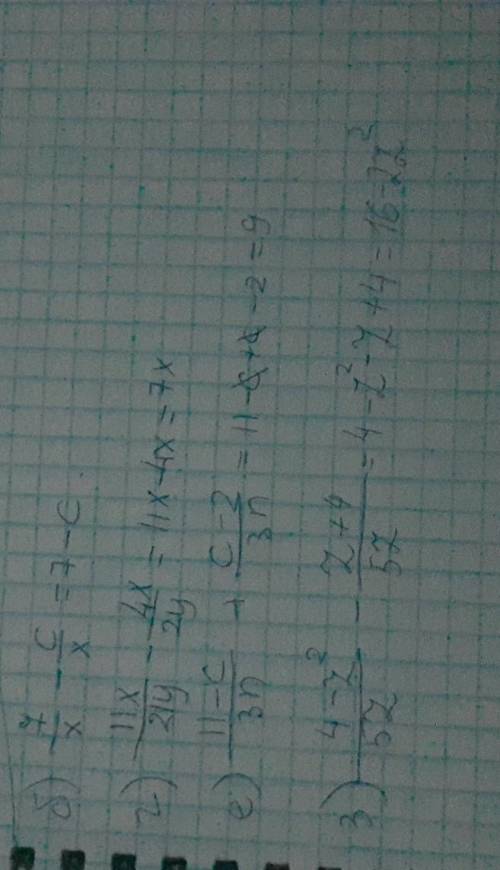 б) 7/x - c/x = 7 - c.
г) 11x/21y - 4x/21y = 11x - 4x = 7x
е) 11-c/3n + c-2/3n = 11 - c + c - 2 = 9
з) 4-z²/5z - z+4/5z = 4 - z² - z + 4 = 16 - 2z²